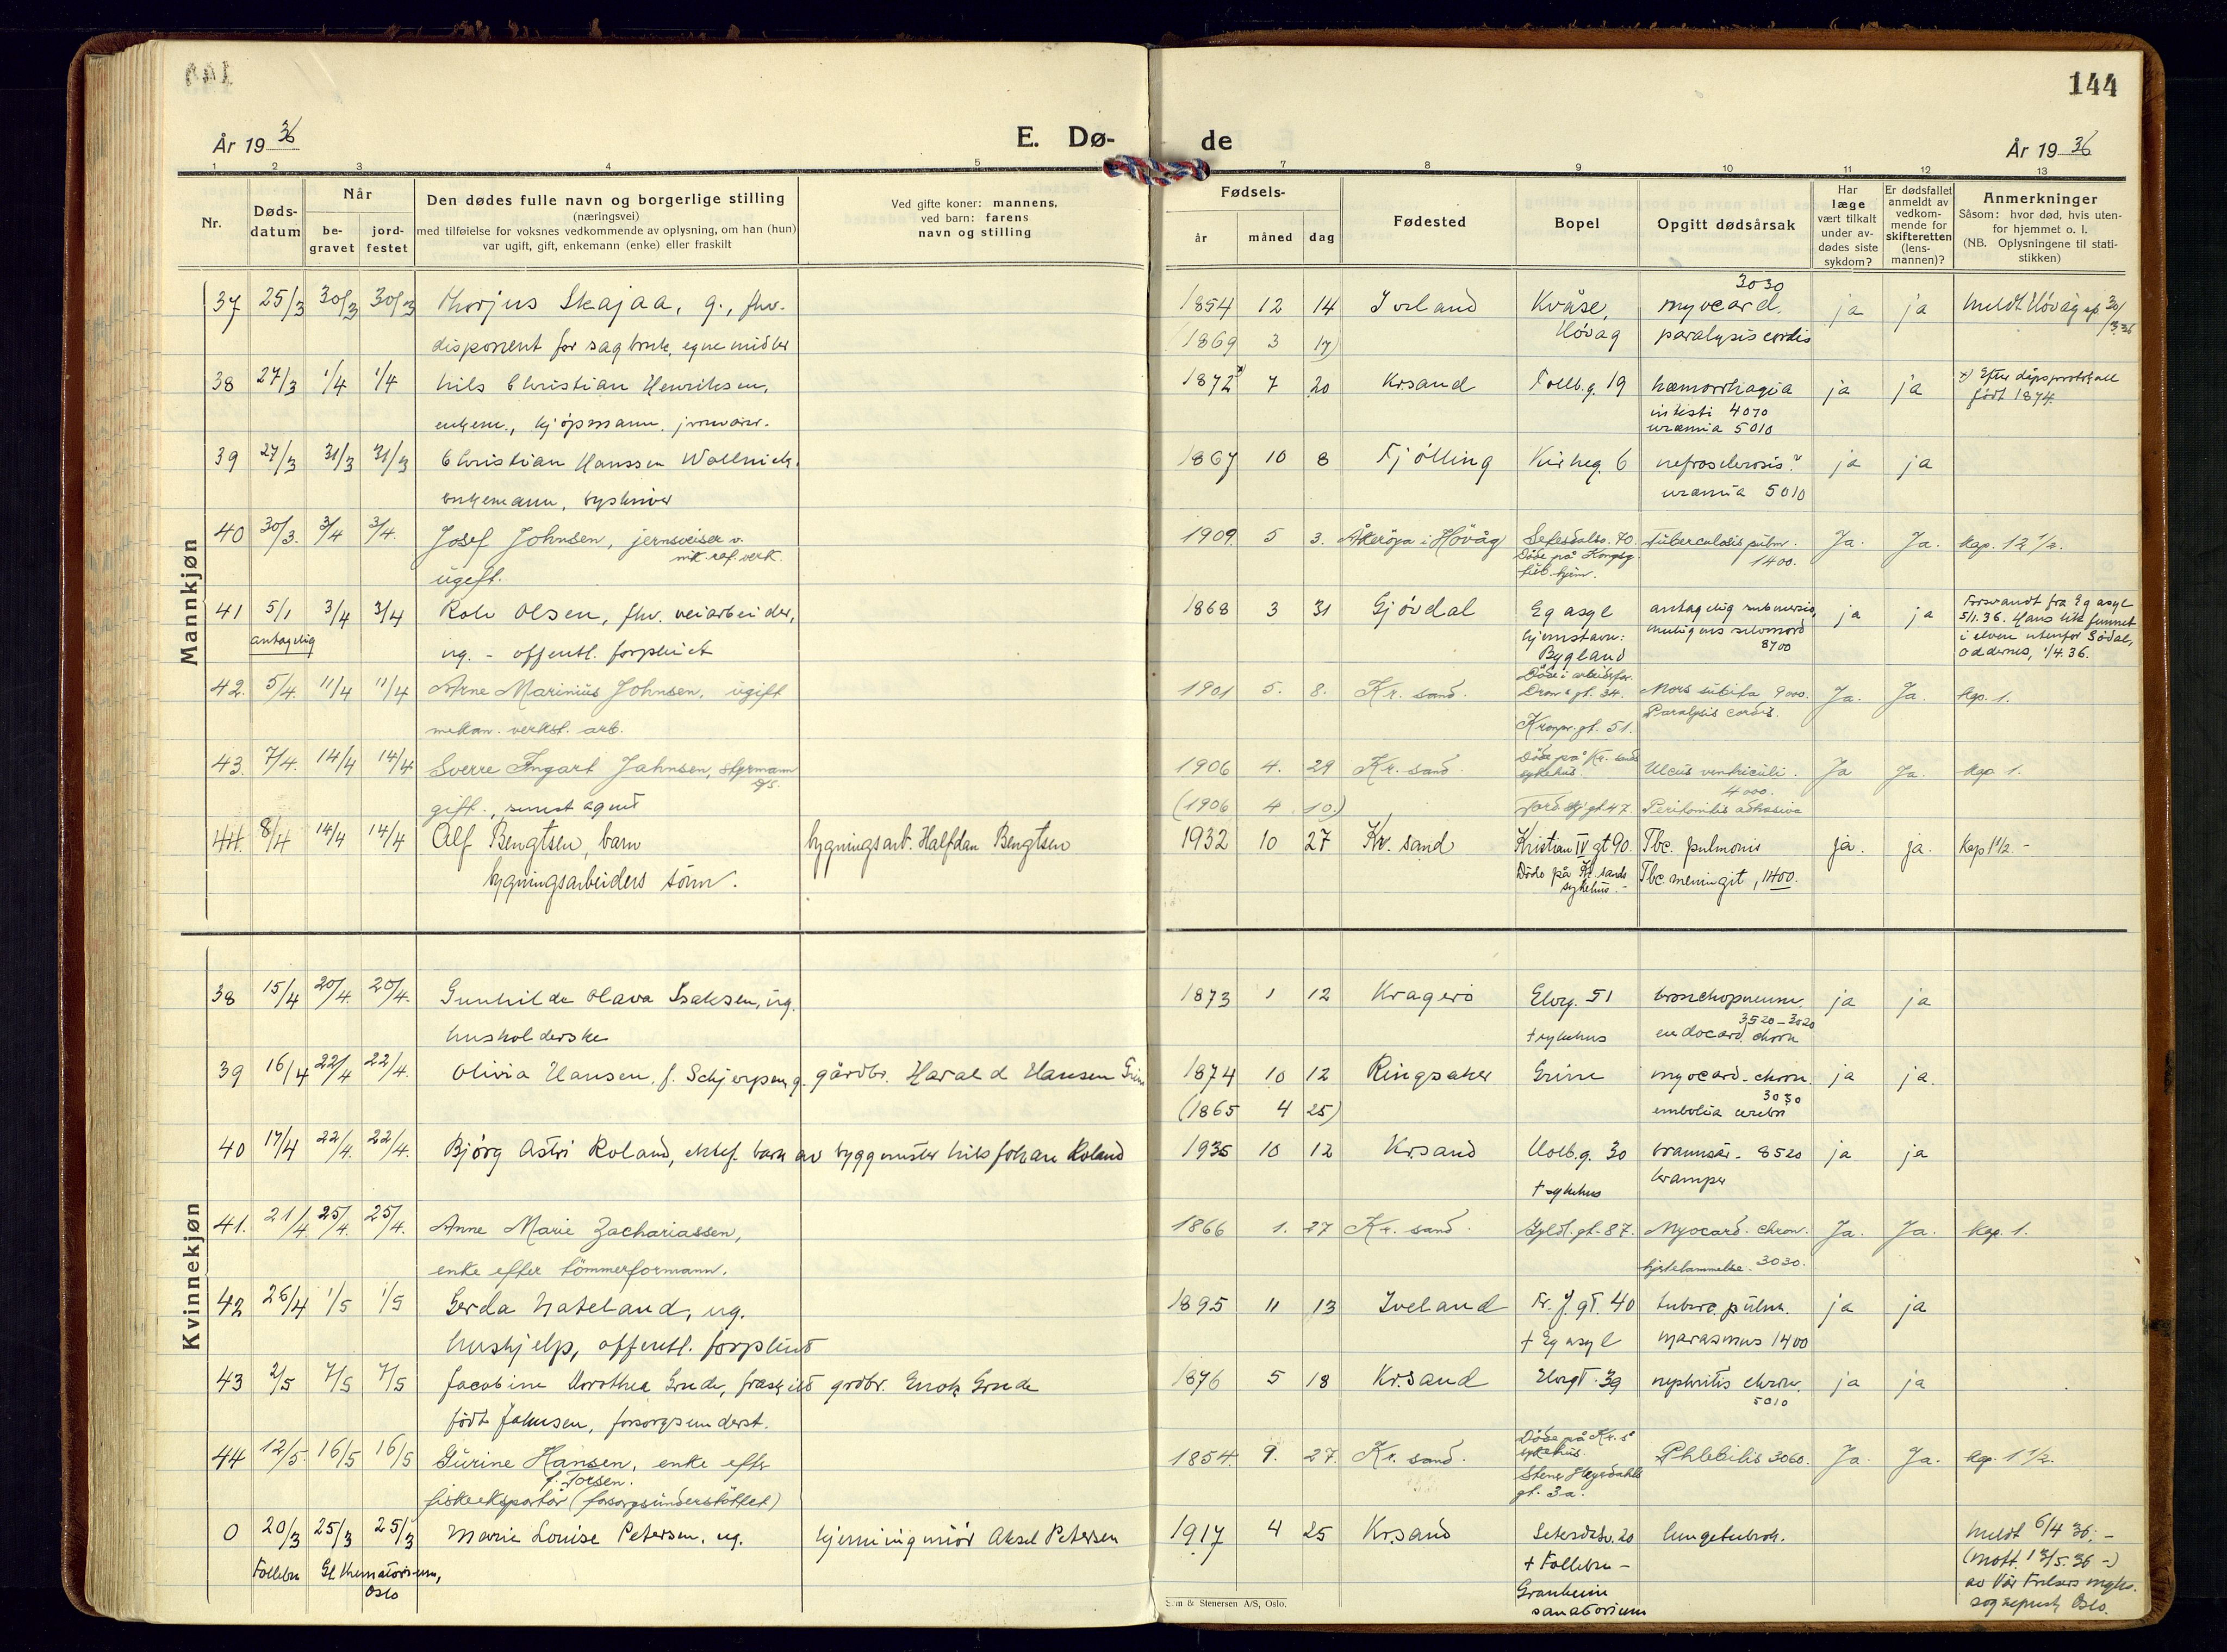 144
År 1936
E. Dø-
de
År 1936
1 2 3 4 5 7 8 9 10 11 12 13
Nr.
Døds-
datum
Når
be-
gravet
jord-
festet
Den dødes fulle navn og borgerlige stilling
(næringsvei)
med tilføielse for voksnes vedkommende av oplysning, om han (hun)
var ugift, gift, enkemann (enke) eller fraskilt
Ved gifte koner: mannens,
ved barn: farens
navn og stilling
Fødsels-
år måned dag
Fødested
Bopel
Opgitt dødsårsak
Har
læge
vært tilkalt
under av-
dødes siste
sykdom?
Er dødsfallet
anmeldt av
vedkom-
mende for
skifteretten
(lens-
mannen)?
Anmerkninger
Såsom: hvor død, hvis uten-
for hjemmet o. l.
(NB. Oplysningene til stati-
stikken)
Mannkjøn
3030
37 25/3 30/3 30/3 Skajaa, g., fhv. 1854 12 14 Iveland Kvåse, myocard. ja ja meldt Høvåg sp 30/3 36
disponent for sagbruk, egne midler 1869 3 17) Høvåg paralysis cordis
38 27/3 1/4 1/4 Nils Christian Henriksen, 1872 x) 7 20 Krsand Tollb.g. 19 hæmorrhagia ja ja x) Efter dåpsprotokoll
enkem., kjøpmann, født 1874.
intesti 4070
uræmia 5010
39 27/3 31/3 31/3 Christian Hanssen 1867 10 8 Tjølling Kirkeg. 6 nefrosclerosis ja ja
enkemann, byskriver uræmia 5010
40 30/3. 3/4 3/4. Josef Johnsen, jernsveiser v. 1909. 5 3. i Høvåg 70 Tuberculosis pulm. Ja. Ja. Kap. 12 1/2.
nik. raf. verk. Døde på Kongsg. 1400.
ugift. tub. hjem.
41 5/1 3/4 3/4 Olsen, fhv. veiarbeider, 1868 3 31 Gjövdal Eg asyl antagelig submersio, ja ja Forsvandt fra Eg asyl
antagelig hjemstavn: muligens selvmord 5/1.36. Hans lik funnet
ug. - offentl. forpleiet Bygland 8700 i elven utenfor Sødal,
Oddernes, 1/4.36.
42. 5/4. 11/4 11/4 Arne Marinius Johnsen, ugift 1901 5. 8. Kr. sand. Døde i arbeidsfor. Mors subita 9000. Ja. Ja. Kap. 1.
Dronn. gt. 34. Paralysis cordis.
mekan. verkst. arb. Kronpr. gt. 51.
43. 7/4. 14/4 14/4 Sverre Ingart Jahnsen, styrmann 1906 4. 29 Kr. sand Døde på Kr. sands Ulcus ventriculi. Ja Ja. Kap. 1.
sykehus. 4000.
gift., agent (1906 4 10) gt 47. Peritonitis adhæsiva
44. 8/4 14/4 14/4 Alf Bengtsen, barn bygningsarb. Halfdan Bengtsen 1932 10 27 Kr. sand Kristian IV gt 90. Tbc. pulmonis ja. ja. Kap 1 1/2. -
bygningsarbeiders sönn. Döde på Kr. sands Tbc. meningit, 1400.
sykehus. -
Kvinnekjøn
38 15/4 20/4. 20/4. Gunhilde Olava Isaksen, ug. 1873 1 12 Kragerö Elvg. 51 bronchopneum. ja ja
3520-3020
husholderske + sykehus endocard. chron
39 16/4 22/4 22/4. Olivia Hansen, f. g. gårdbr. Harald Hansen Grim 1874 10 12 Ringsaker Grim myocard. chron. ja ja.
3030
(1865 4 25) embolia cerebri
40 17/4 22/4. 22/4. Bjørg Astri Roland, ektef. barn av byggmester Nils Johan Roland 1935 10 12 Krsand Holb.g. 30 brannsår. 8520 ja ja
+ sykehus kramper
41. 21/4 25/4. 25/4. Anne Marie Zachariassen, 1866 1. 27 Kr. sand. Gyldl. gt. 87. Myocard. chron. Ja. Ja. Kap. 1.
enke efter tömmerformann. hjertelammelse. 3030.
42 26/4 1/5 1/5 Gerda Nateland, ug. 1895 11 13 Iveland gt. 40 tuberc. pulm. ja ja
hushjelp, offentl. forpleiet + Eg asyl marasmus 1400
43 2/5 7/5 7/5 Jacobine Dorothea Grude, fraskilt grdbr. Enok Grude 1876 5 18 Kr.sand Elvegt. 39 nephritis chron. ja ja
5010
født Johnsen, forsorgsunderst.
44 12/5. 16/5 16/5 Gurine Hansen, enke efter 1854. 9. 27. Kr. sand. Döde på Kr. s. Phlebitis 3060. Ja. Ja. Kap. 1 1/2.
f. Torsen. sykehus.
fiskeeksportör (forsorgsunderstöttet) Stener Heyerdahls
gt. 3a.
0 20/3 25/3 25/3 Marie Louise Petersen, ug. Aksel Petersen 1917 4 25 Krsand 20 lungetuberk. Meldt 6/4 36. -
Follebu Gl. Krematorium, + Follebu - (mott. 13/5.36 -)
Oslo Granheim av Vår Frelsers
sanatorium sogneprest, Oslo.
& Stenersen A/S, Oslo.